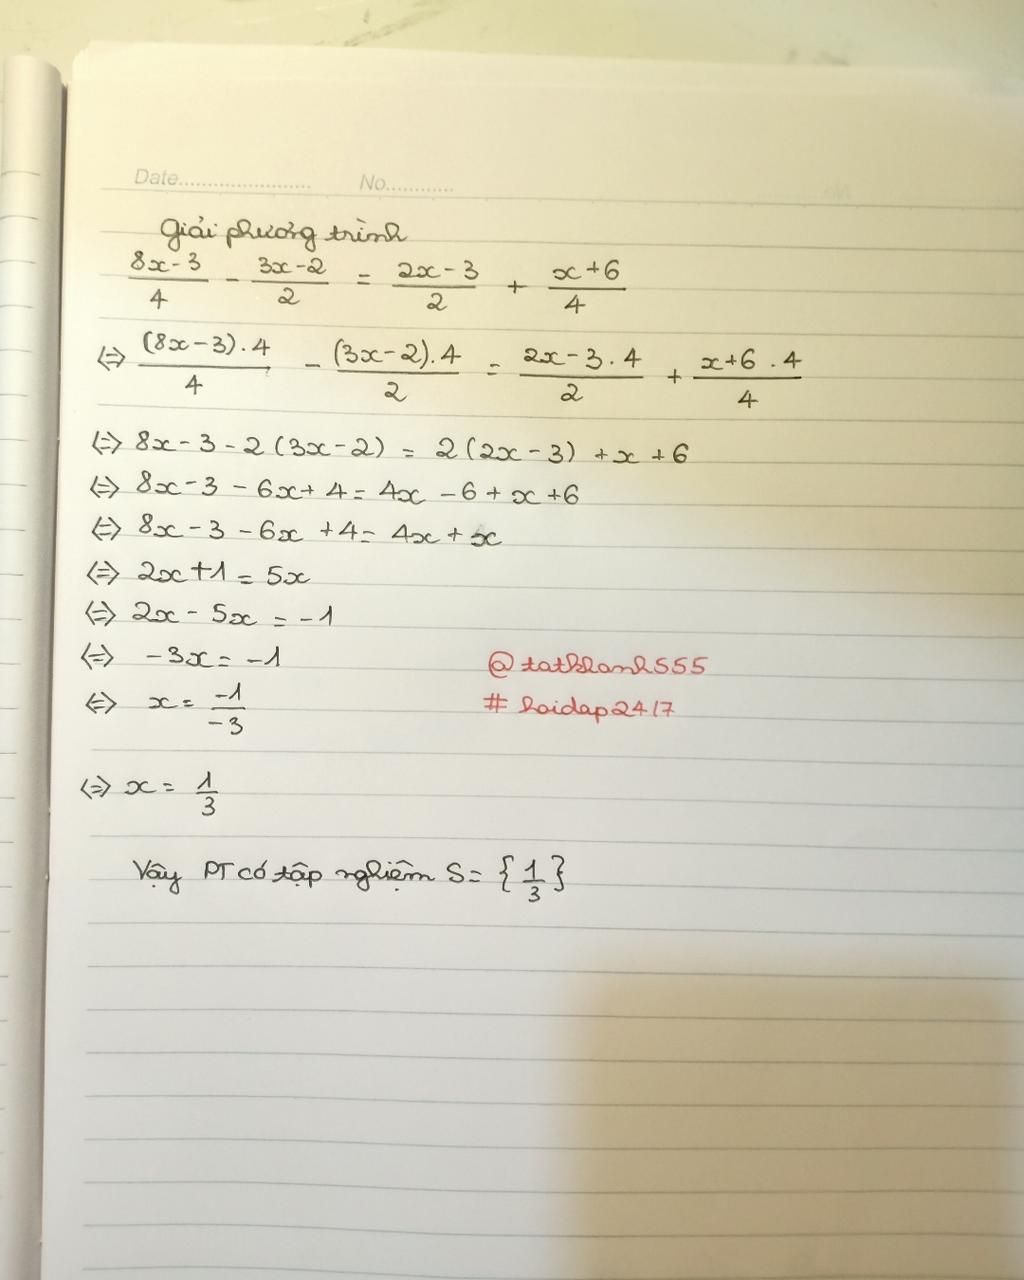 Date.......................	No............
Giải phương trình
(8x-3)/4 - (3x-2)/2 = (2x-3)/2 + (x+6)/4
⇔ ((8x-3).4)/4 - ((3x-2).4)/2 = (2x-3.4)/2 + (x+6.4)/4
⇔ 8x-3-2(3x-2) = 2(2x-3)+x+6
⇔ 8x-3-6x+4=4x-6+x+6
⇔ 8x-3-6x+4=4x+x
⇔ 2x+1=5x
⇔ 2x-5x=-1
⇔ -3x=-1
@tatkhanh555
⇔ x=-1/-3
#hoidap247
⇔ x=1/3
Vậy PT có tập nghiệm S={1/3}